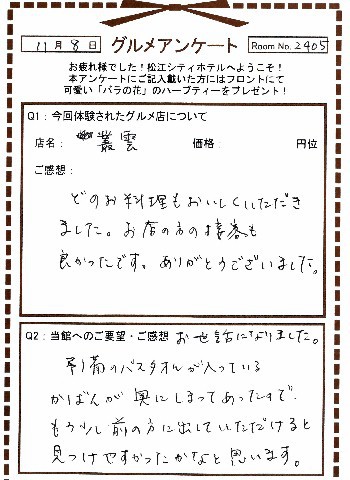 11月8日 グルメアンケート Room No. 2405
お疲れ様でした！松江シティホテルへようこそ！
本アンケートにご記入戴いた方にはフロントにて
可愛い「バラの花」のハーブティーをプレゼント！
Q1：今回体験されたグルメ店について
店名： 叢雲 価格： 円位
ご感想：
どのお料理もおいしくいただき
ました。お店の方の接客も
良かったです。ありがとうございました。
Q2：当館へのご要望・ご感想 お世話になりました。
のバスタオルが入っている
かばんが奥にしまってあったので、
もう少し前の方に出していただけると
見つけやすかったかなと思います。